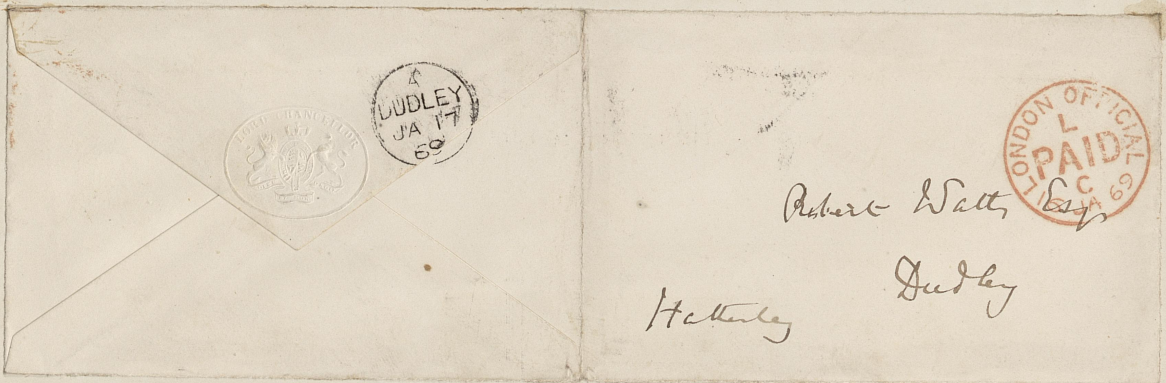 LORD CHANCELLOR
A
DUDLEY
JA 17
69
LONDON OFFICIAL
L
PAID
C
16 JA 69
Robert Watts Esq
Dudley
Hatherley